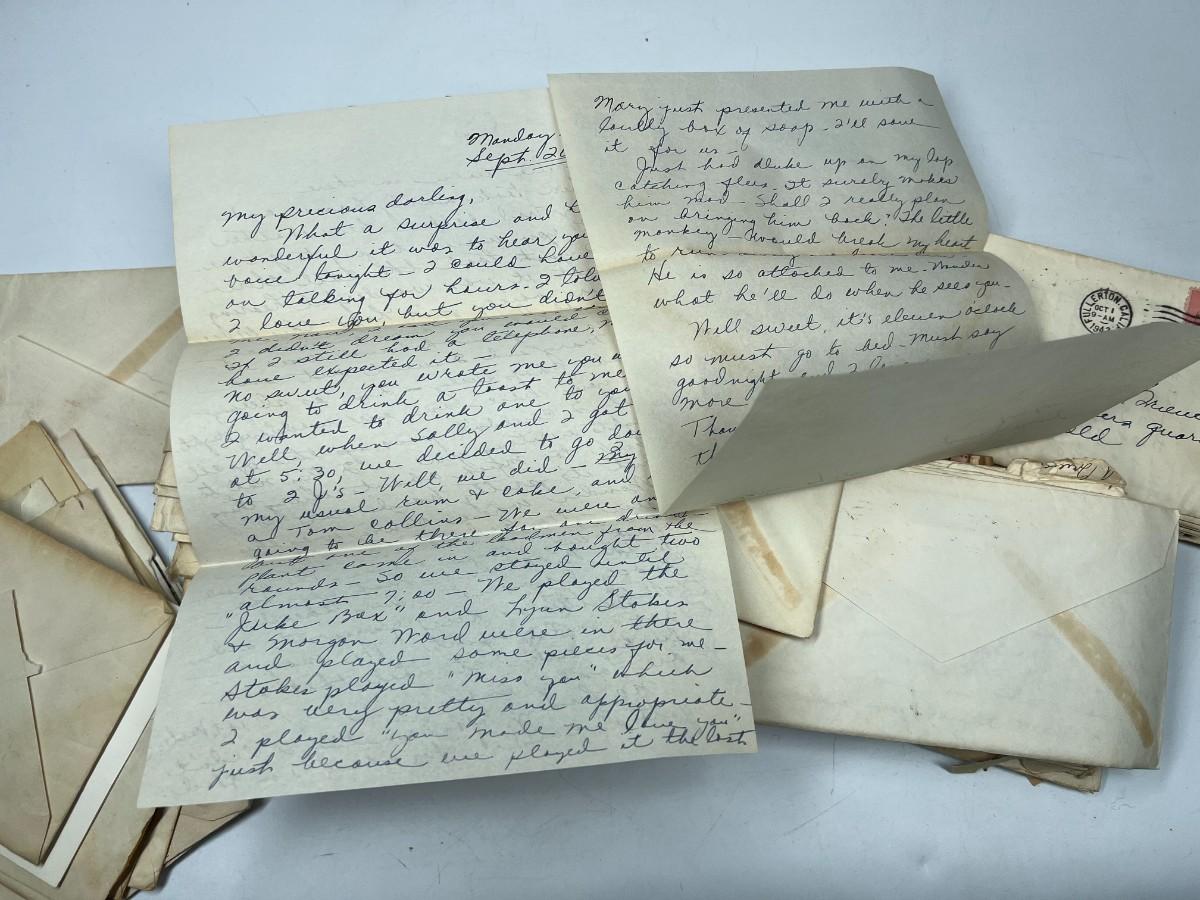 Monday
Sept. 20
My precious darling,
What a surprise and
wonderful it was to hear you
voice tonight - I could have
on talking for hours. I told
I love you, but you didn't
I didn't dream you
If I still had a telephone,
have expected it -
No sweet, you wrote me you
going to drink a toast to me
I wanted to drink one to you
Well, when Sally and I got
at 5:30, we decided to go do
to 2 J's - Well, we did - My
my usual rum & coke, and
a Tom Collins - We were
going to be there for one drink
but one of the from the
plant came in and bought two
rounds - So we stayed until
almost 7:00 - We played the
"Juke Box" and Lynn Stokes
& Morgan Word were in there
and played some pieces for me -
Stokes played "Miss you" which
was very pretty and appropriate -
I played "You Made Me Love You"
just because we played it the last
Mary just presented me with a
lovely box of soap - I'll save
it for us -
Just had duke up on my lap
catching flees. It surely makes
him mad - Shall I really plan
on bringing him back? The little
monkey - Would break my heart
to
He is so attached to me. Wonder
what he'll do when he sees you -
Well sweet, it's eleven oclock
so must go to bed - Must say
goodnight and I
more
FULLERTON, CALIF.
OCT 1
9-AM
194